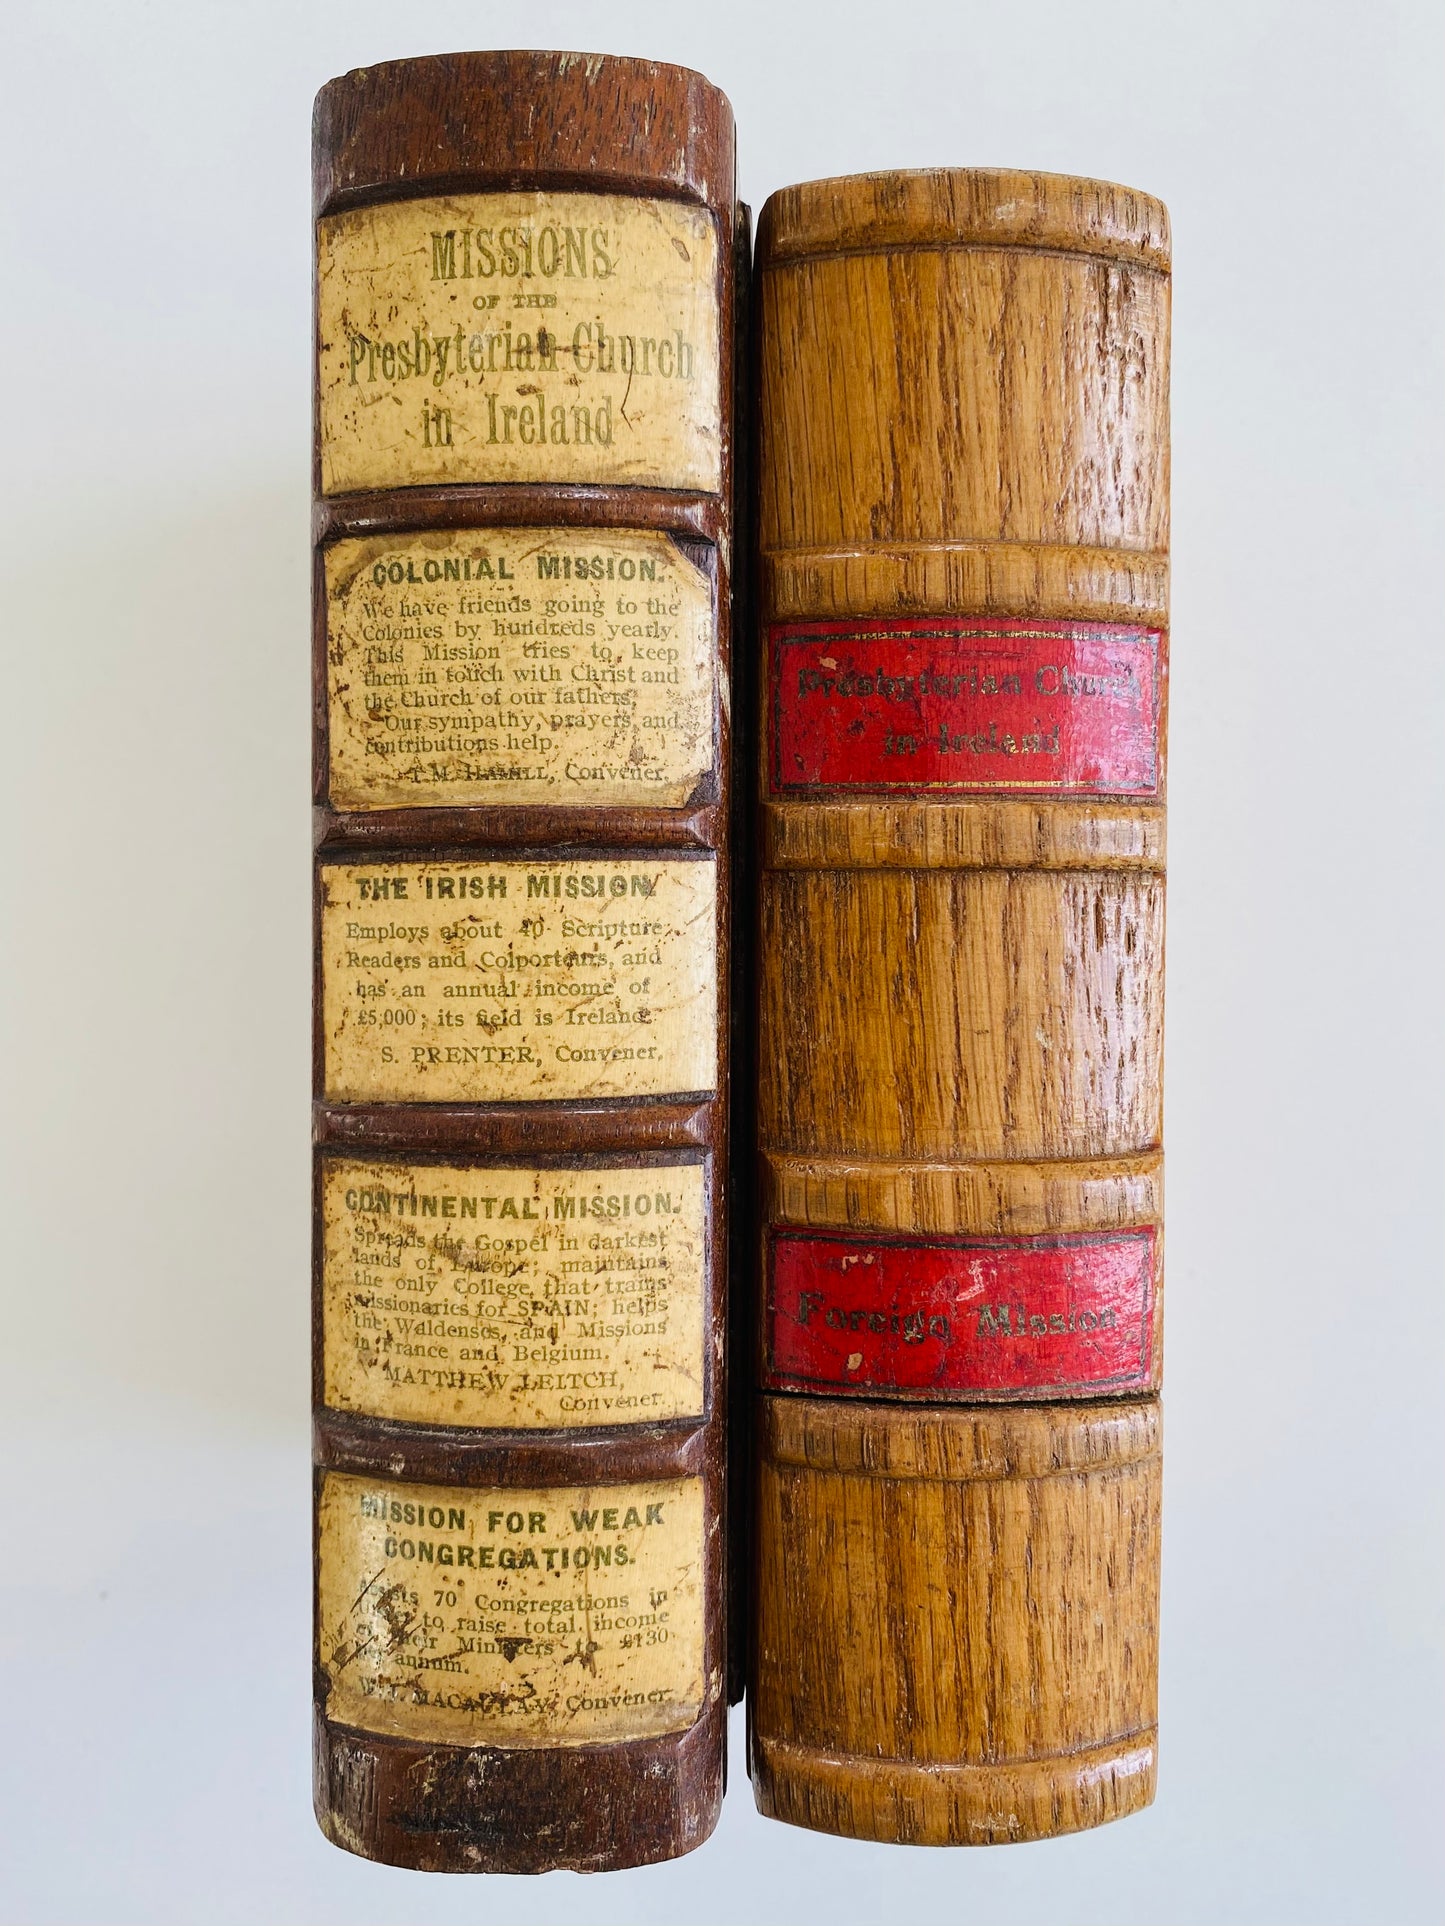 MISSIONS
OF THE
Presbyterian Church
in Ireland
COLONIAL MISSION.
We have friends going to the
Colonies by hundreds yearly.
This Mission tries to keep
them in touch with Christ and
the Church of our fathers.
Our sympathy, prayers, and
contributions help.
T. M. HAMILL, Convener.
THE IRISH MISSION.
Employs about 40 Scripture
Readers and Colporteurs, and
has an annual income of
£5,000; its field is Ireland.
S. PRENTER, Convener.
CONTINENTAL MISSION.
Spreads the Gospel in darkest
lands of Europe; maintains
the only College that trains
Missionaries for SPAIN; helps
the Waldenses, and Missions
in France and Belgium.
MATTHEW LEITCH,
Convener.
MISSION FOR WEAK
CONGREGATIONS.
Assists 70 Congregations in
to raise total income
their Ministers to £130
annum.
MACAULAY, Convener.
Presbyterian Church
in Ireland
Foreign Mission